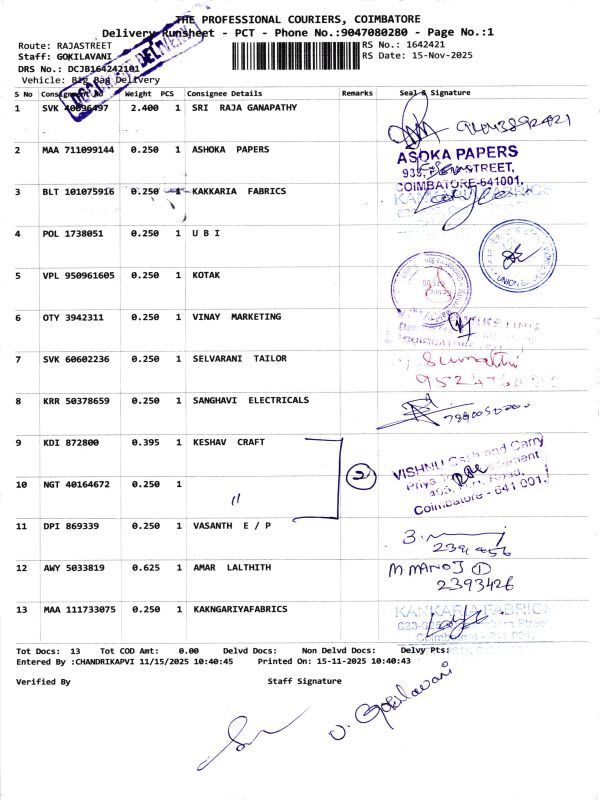 THE PROFESSIONAL COURIERS, COIMBATORE
Delivery Runsheet - PCT - Phone No.:9047080280 - Page No.:1
Route: RAJASTREET RS No.: 1642421
Staff: GOKILAVANI RS Date: 15-Nov-2025
DRS No.: DCJB164242101
Vehicle: Big Bag Delivery
DELIVERY
S No Consignment No Weight PCS Consignee Details Remarks Seal & Signature
1 SVK 40096497 2.400 1 SRI RAJA GANAPATHY
2 MAA 711099144 0.250 1 ASHOKA PAPERS
ASOKA PAPERS
STREET,
COIMBATORE-641001.
3 BLT 101075916 0.250 1 KAKKARIA FABRICS
KANKARIA FABRICS
4 POL 1738051 0.250 1 U B I
UNION
5 VPL 950961605 0.250 1 KOTAK
6 OTY 3942311 0.250 1 VINAY MARKETING
7 SVK 60602236 0.250 1 SELVARANI TAILOR
Sumathi
8 KRR 50378659 0.250 1 SANGHAVI ELECTRICALS
9 KDI 872800 0.395 1 KESHAV CRAFT
2
VISHNU Cash and Carry
Priya
Road,
Coimbatore - 641 001.
10 NGT 40164672 0.250 1
"
11 DPI 869339 0.250 1 VASANTH E / P
12 AWY 5033819 0.625 1 AMAR LALTHITH
M MANOJ 1
2393426
13 MAA 111733075 0.250 1 KAKNGARIYAFABRICS
KANKARIA FABRICS
Street,
Coimbatore - 641 001.
Tot Docs: 13 Tot COD Amt: 0.00 Delvd Docs: Non Delvd Docs: Delvy Pts:
Entered By :CHANDRIKAPVI 11/15/2025 10:40:45 Printed On: 15-11-2025 10:40:43
Verified By Staff Signature
V. Gokilavani